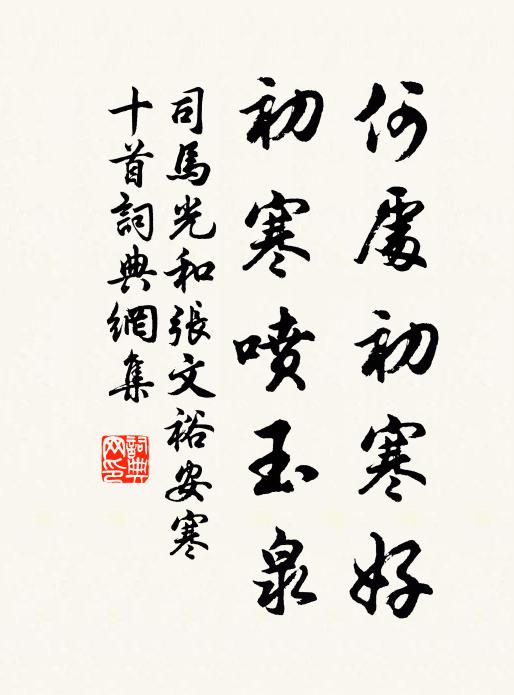 何處初寒好
初寒噴玉泉
司馬光和張文裕安寒
十首詞典網集
詞典網印